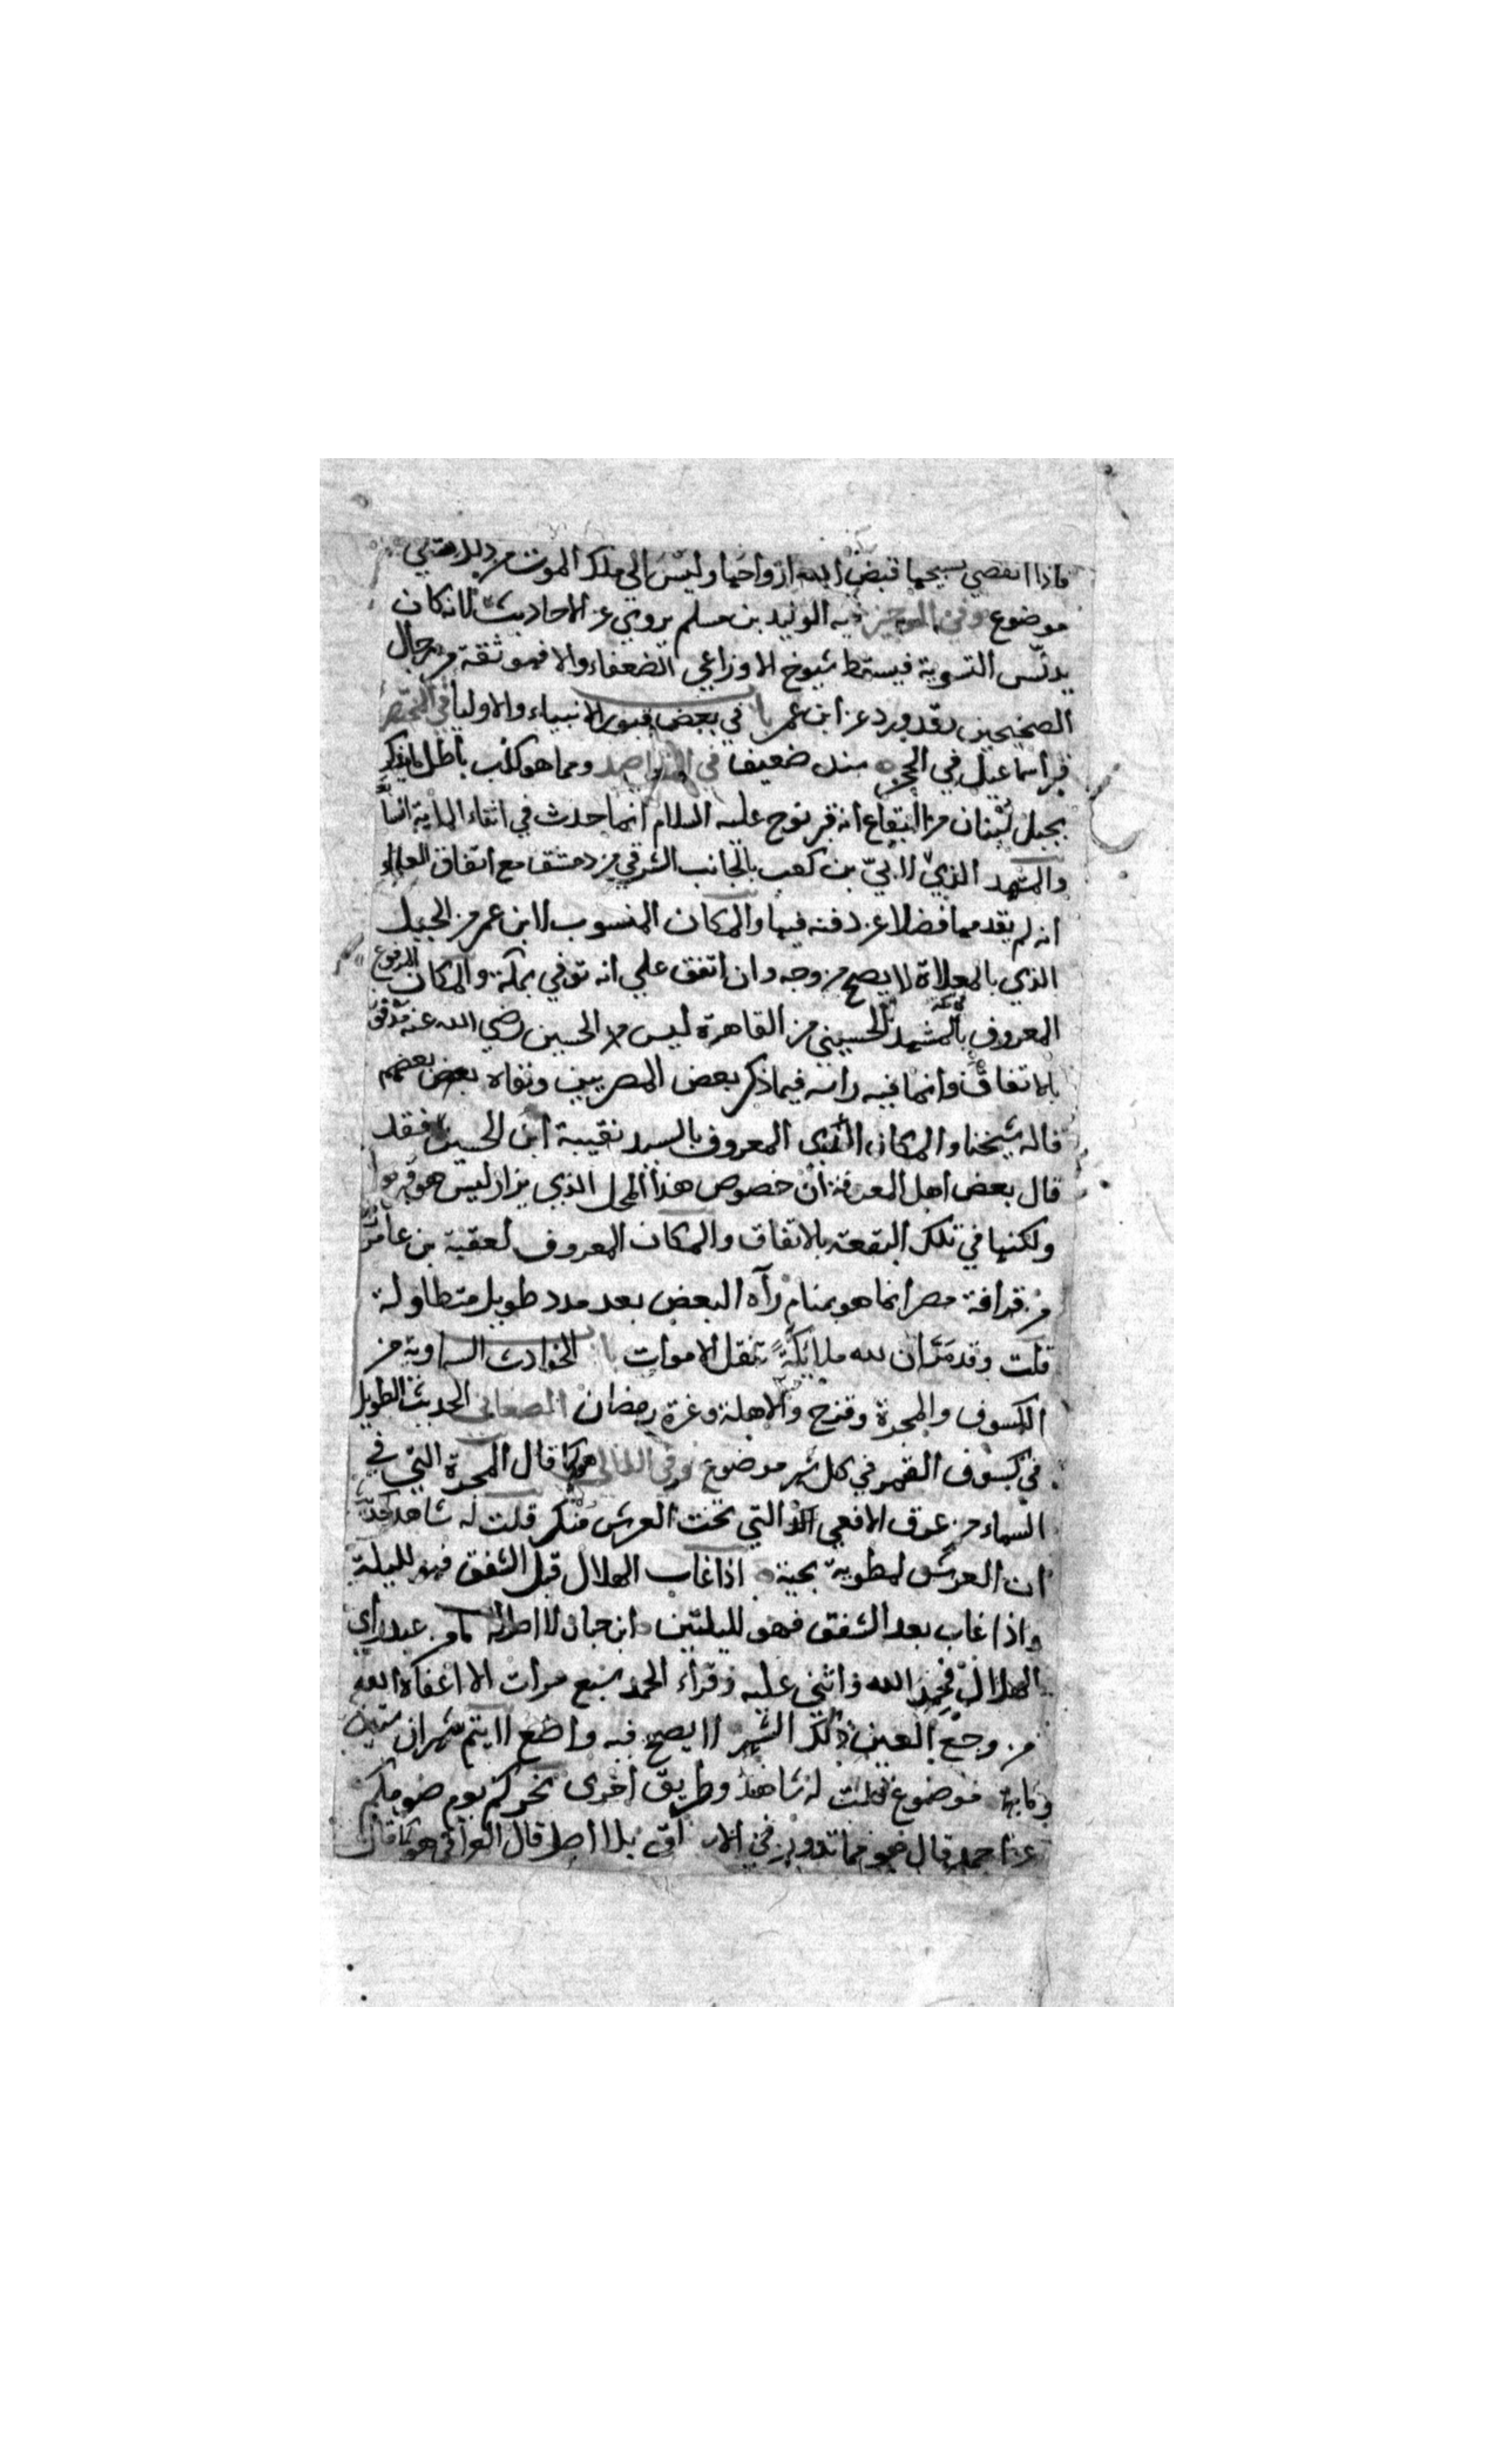 فاذا انقضي تسبيحها قبض الله ارواحها وليس الي ملك الموت من ذلك شي
موضوع وفي الوجيز فيه الوليد بن مسلم يروي عن الاحاديث لانه كان
يدلس التسوية فيسقط شيوخ الاوزاعي الضعفاء والا فهو ثقة من رجال
الصحيحين وقد ورد عن ابن عمر باب في بعض قبور الانبياء والاوليا في المختصر
قبر اسماعيل في الحجر سند ضعيف في المقاصد ومما هو كذب باطل ما يذكر
بجبل لبنان من البقاع انه قبر نوح عليه السلام انما حدث في اثناء الماية
والمشهد الذي لابيّ بن كعب بالجانب الشرقي من دمشق مع اتفاق العلماء
انه لم يقدمها فضلا عن دفنه فيها والمكان المنسوب لابن عمر من الجبل
الذي بالمعلاة لا يصح من وجه وان اتفق علي انه توفي بمكة والمكان
المعروف بالمشهد الحسيني من القاهرة ليس الحسين رضي الله عنه مدفون
بالاتفاق وانما فيه راسه فيما ذكر بعض المصريين ونفاه بعضهم
قاله شيخنا والمكان الذي المعروف بالسيد نفيسة ابن الحسين فقد
قال بعض اهل المعرفة ان خصوص هذا المحل الذي يزار ليس هو قبرها
ولكنها في تلك البقعة بالاتفاق والمكان المعروف لعقبة بن عامر
من قرافة مصر انما هو بمنام رآه البعض بعد مدد طويل متطاولة
قلت وقد مر ان لله ملائكة تنقل الاموات باب الحوادث السماوية من
الكسوف والمجرة وقزح والاهلة وغرة رمضان الصغاني الحديث الطويل
في كسوف القمر في كل شهر موضوع وفي اللالي هو كما قال المجرة التي في
السماء من عرق الافعي التي تحت العرش منكر قلت له شاهد
ان العرش لمطوية بحية اذا غاب الهلال قبل الشفق فهو لليلة
واذا غاب بعد الشفق فهو لليلتين ابن حبان لا اصل له ما من عبد راي
الهلال فحمد الله واثني عليه وقراء الحمد سبع مرات الا اعفاه الله
من وجع العين ذلك الشهر لا يصح فيه واضع لا يتم شهران ستين
موضوع قلت له شاهد وطريق اخري نحركم يوم صومكم
عن احمد قال هو مما تدور في الاسواق بلا اصل قال العراقي هو كما قال